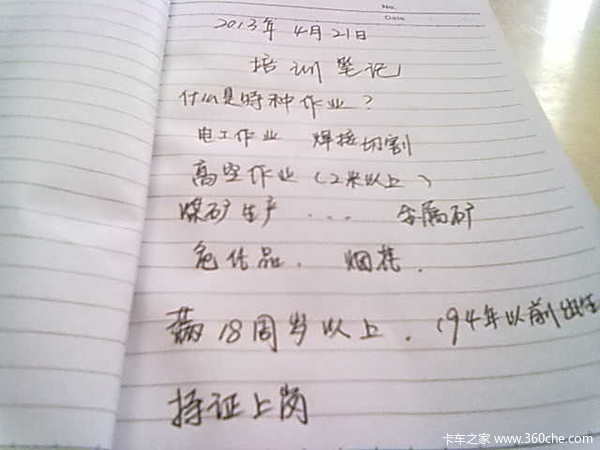 No.
Date
2013年 4月 21日
培训笔记
什么是特种作业？
电工作业 焊接切割
高空作业（2米以上）
煤矿生产 . . . 金属矿
危化品. 烟花.
满18周岁以上.（94年以前出生
持证上岗
卡车之家 www.360che.com